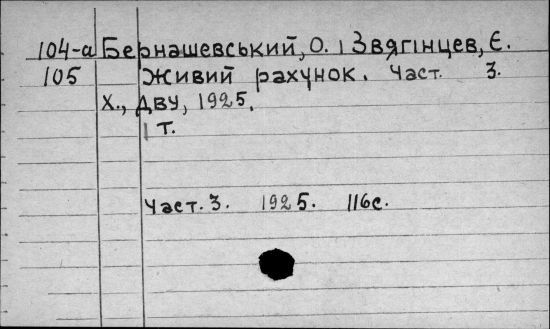 104-а Бернашевський, О. і Звягінцев, Є.
105 Живий рахунок. Част. 3.
Х., ДВУ, 1925.
1 т.
Част. 3. 1925. 116с.